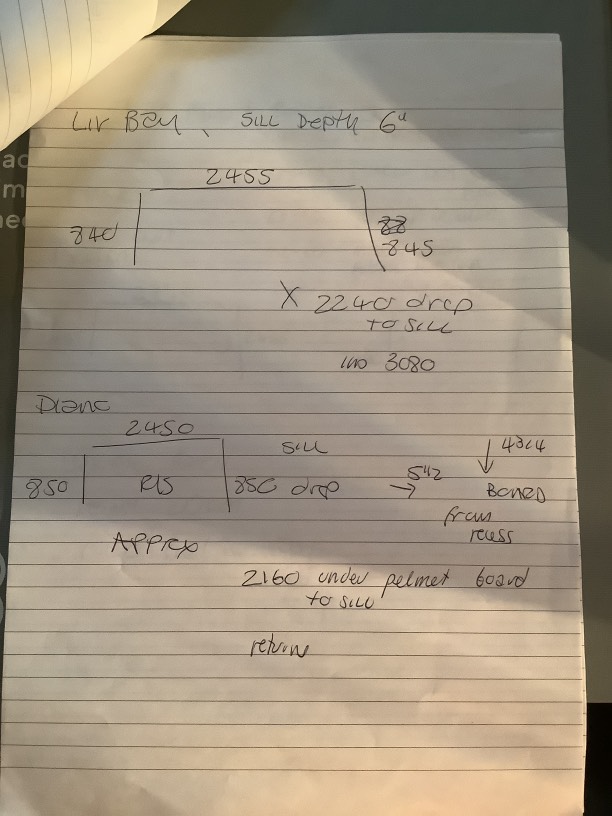 Liv Bay, Sill Depth 6"
2455
840
845
X 2240 drop
to sill
3080
2450
Sill
850
850 drop
→
Boxed
from
recess
Approx
2160 under pelmet board
to sill
return